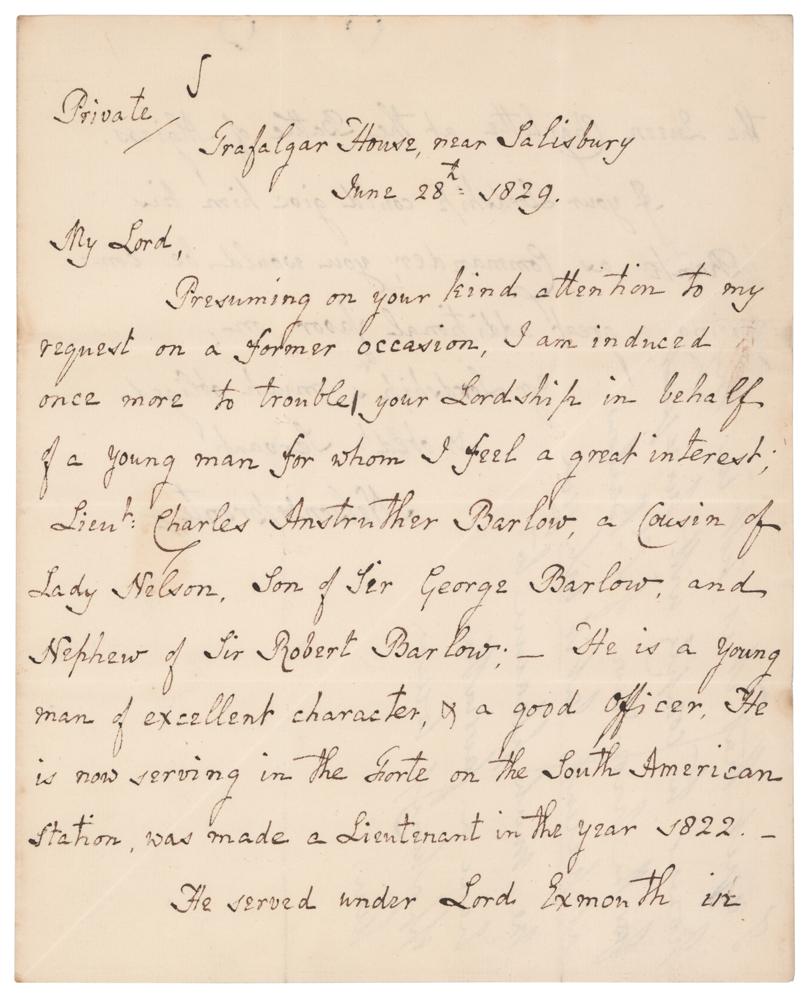 Private
Trafalgar House, near Salisbury
June 28th: 1829.
My Lord,
Presuming on your kind attention to my
request on a former occasion, I am induced
once more to trouble your Lordship in behalf
of a young man for whom I feel a great interest;
Lieut: Charles Anstruther Barlow, a Cousin of
Lady Nelson, Son of Sir George Barlow, and
Nephew of Sir Robert Barlow; — He is a young
man of excellent character, & a good officer. He
is now serving in the Forte on the South American
Station, was made a Lieutenant in the year 1822. —
He served under Lord Exmouth in